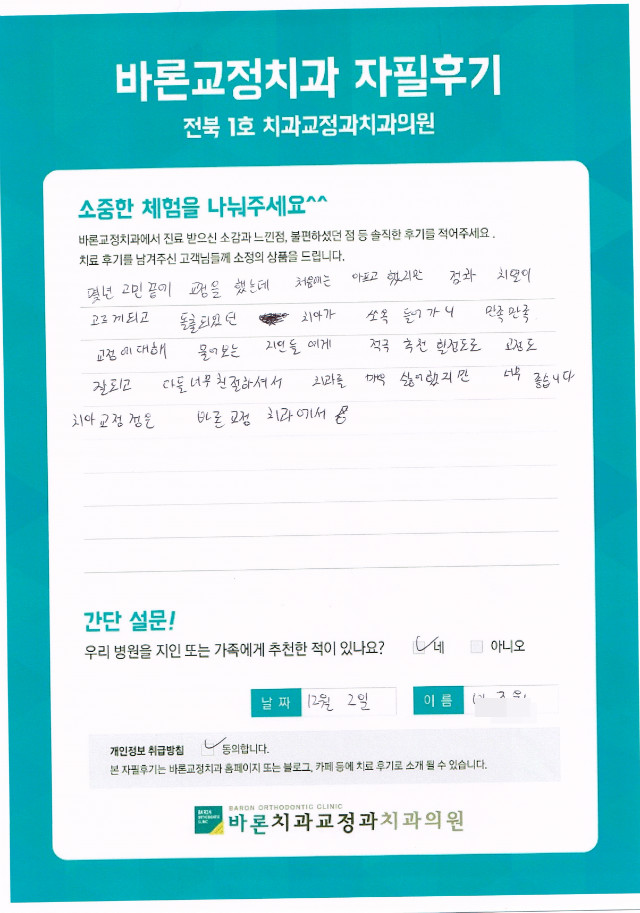 바론교정치과 자필후기
전북 1호 치과교정과치과의원
소중한 체험을 나눠주세요^^
바론교정치과에서 진료 받으신 소감과 느낀점, 불편하셨던 점 등 솔직한 후기를 적어주세요.
치료 후기를 남겨주신 고객님들께 소정의 상품을 드립니다.
몇년 고민 끝에 교정을 했는데 처음에는 아프고 했지만 점차 치열이
고르게되고 돌출되었던 치아가 쏘옥 들어가니 만족만족
교정에대해 물어보는 지인들에게 적극 추천 할정도로 교정도
잘되고 다들너무친절하셔서 치과를 매우 싫어했지만 너무 좋습니다
치아교정점은 바론교정 치과에서
간단 설문!
우리 병원을 지인 또는 가족에게 추천한 적이 있나요? 네 아니오
날 짜 12월 2일 이 름
개인정보 취급방침 동의합니다.
본 자필후기는 바론교정치과 홈페이지 또는 블로그, 카페 등에 치료 후기로 소개 될 수 있습니다.
BARON ORTHODONTIC CLINIC
바론치과교정과치과의원